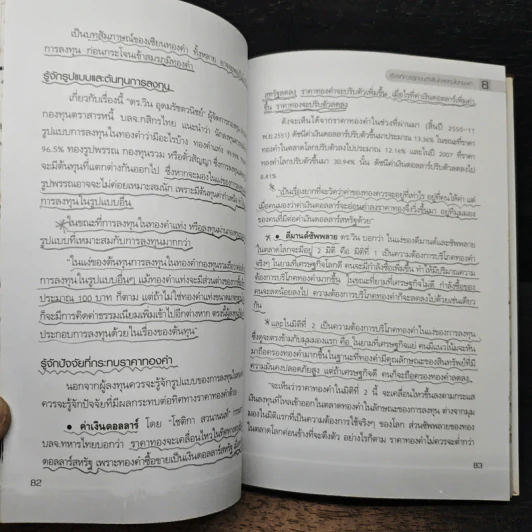 เป็นบทสัมภาษณ์ของเซียนทองคำ ทั้งหลาย
การลงทุน ก่อนกระโจนเข้าสมรภูมิทองคำ
รู้จักรูปแบบและต้นทุนการลงทุน
เกี่ยวกับเรื่องนี้ "ดร.วิน อุดมรัชตวนิชย์"
กองทุนตราสารหนี้ บลจ.กสิกรไทย แนะนำว่า
รูปแบบการลงทุนในทองคำว่ามีอะไรบ้าง ทองคำแท่ง
96.5% ทองรูปพรรณ กองทุนรวม หรือตั๋วสัญญา
จะมีต้นทุนที่แตกต่างกันออกไป ซึ่งหากจะมองในแง่ของการลงทุน
รูปพรรณอาจจะไม่ค่อยเหมาะสมนัก เพราะมีต้นทุนค่ากำเหน็จ
การลงทุนในรูปแบบอื่น
"ในขณะที่การลงทุนในทองคำแท่ง หรือลงทุนผ่านกองทุน
รูปแบบที่เหมาะสมกับการลงทุนมากกว่า"
"ในแง่ของต้นทุนการลงทุนในทองคำกองทุนรวม
การลงทุนในรูปแบบอื่นๆ แม้ทองคำแท่งจะมีส่วนต่างของ
ประมาณ 100 บาท ก็ตาม แต่ถ้าไม่ใช่ทองคำแท่งขนาด
ก็จะมีการคิดค่าธรรมเนียมเพิ่มเข้าไปอีกต่างหาก
ประกอบการลงทุนด้วยในเรื่องของต้นทุน"
รู้จักปัจจัยที่กระทบราคาทองคำ
นอกจากผู้ลงทุนควรจะรู้จักรูปแบบของการลงทุน
ควรจะรู้จักปัจจัยที่มีผลกระทบต่อทิศทางราคาทองคำ
● ค่าเงินดอลลาร์ โดย "โชติกา สวนานนท์"
บลจ.ทหารไทยบอกว่า ราคาทองจะเคลื่อนไหวในทิศทาง
ดอลลาร์สหรัฐ เพราะทองคำซื้อขายเป็นเงินดอลลาร์สหรัฐ
82
8
สหรัฐลดลง ราคาทองคำจะปรับตัวเพิ่มขึ้น เมื่อไรที่ค่าเงินดอลลาร์เพิ่มค่า
ขึ้น ราคาทองจะปรับตัวลดลง
ดังจะเห็นได้จากราคาทองคำในช่วงที่ผ่านมา (สิ้นปี 2550-11
พ.ย.2551) ดัชนีค่าเงินดอลลาร์ปรับตัวขึ้นมาประมาณ 13.36% ในขณะที่ราคา
ทองคำในตลาดโลกปรับตัวลงไปประมาณ 12.16% และในปี 2007 ที่ราคา
ทองคำโลกปรับตัวขึ้นมา 30.94% นั้น ดัชนีค่าเงินดอลลาร์ปรับตัวลดลงไป
8.41%
"เป็นเรื่องยากที่จะวัดว่าค่าของทองควรจะอยู่ที่เท่าไร อยู่ที่คนให้ค่า แต่
เมื่อคนมองว่าค่าเงินดอลลาร์จะอ่อนค่าลงราคาทองจึงวิ่งขึ้นมา อยู่ที่มุมมอง
ของคนที่มีต่อค่าเงินดอลลาร์สหรัฐด้วย"
● ดีมานด์ซัพพลาย ดร.วิน บอกว่า ในแง่ของดีมานด์และซัพพลาย
ในตลาดโลกจะมีอยู่ 2 มิติ คือ มิติที่ 1 เป็นความต้องการบริโภคทองคำ
จริงๆ ในยามที่เศรษฐกิจโลกดี คนจะมีกำลังซื้อเพิ่มขึ้น ทำให้มีปริมาณความ
ต้องการบริโภคทองคำมากขึ้น ในขณะที่ยามที่เศรษฐกิจไม่ดี กำลังซื้อของ
คนจะลดน้อยลงไป ความต้องการบริโภคทองคำก็จะลดลงไปด้วยเช่นเดียว
กัน
และในมิติที่ 2 เป็นความต้องการบริโภคทองคำในแง่ของการลงทุน
ซึ่งดูจะตรงข้ามกับมุมมองแรก คือ ในยามที่เศรษฐกิจแย่ คนมีแนวโน้มจะหัน
มาถือครองทองคำมากขึ้น ในฐานะที่ทองคำมีคุณลักษณะของสินทรัพย์ที่มี
ความมั่นคงปลอดภัยสูง แต่ถ้าเศรษฐกิจดี คนก็จะถือครองทองคำลดลง
"จะเห็นว่าราคาทองคำในมิติที่ 2 นี้ จะเคลื่อนไหวขึ้นลงตามกระแส
เงินลงทุนที่ไหลเข้าออกในตลาดทองคำ ในลักษณะของการลงทุน ต่างจากมุม
มองในมิติแรกที่เป็นความต้องการใช้จริงๆ ของโลก ส่วนซัพพลายของทอง
ในตลาดโลกค่อนข้างที่จะตึงตัว อย่างไรก็ตาม ราคาทองคำไม่ควรจะต่ำกว่า
83